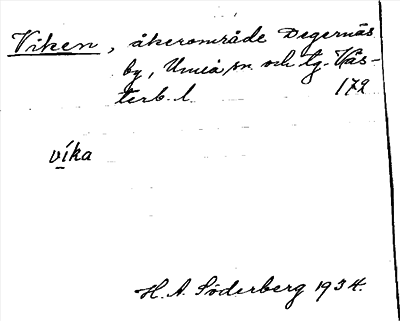 Viken, åkerområde Degernäs
by, Umeå sn. och tg. Väs-
terb. l. 172
víka
H. A. Söderberg 1934.